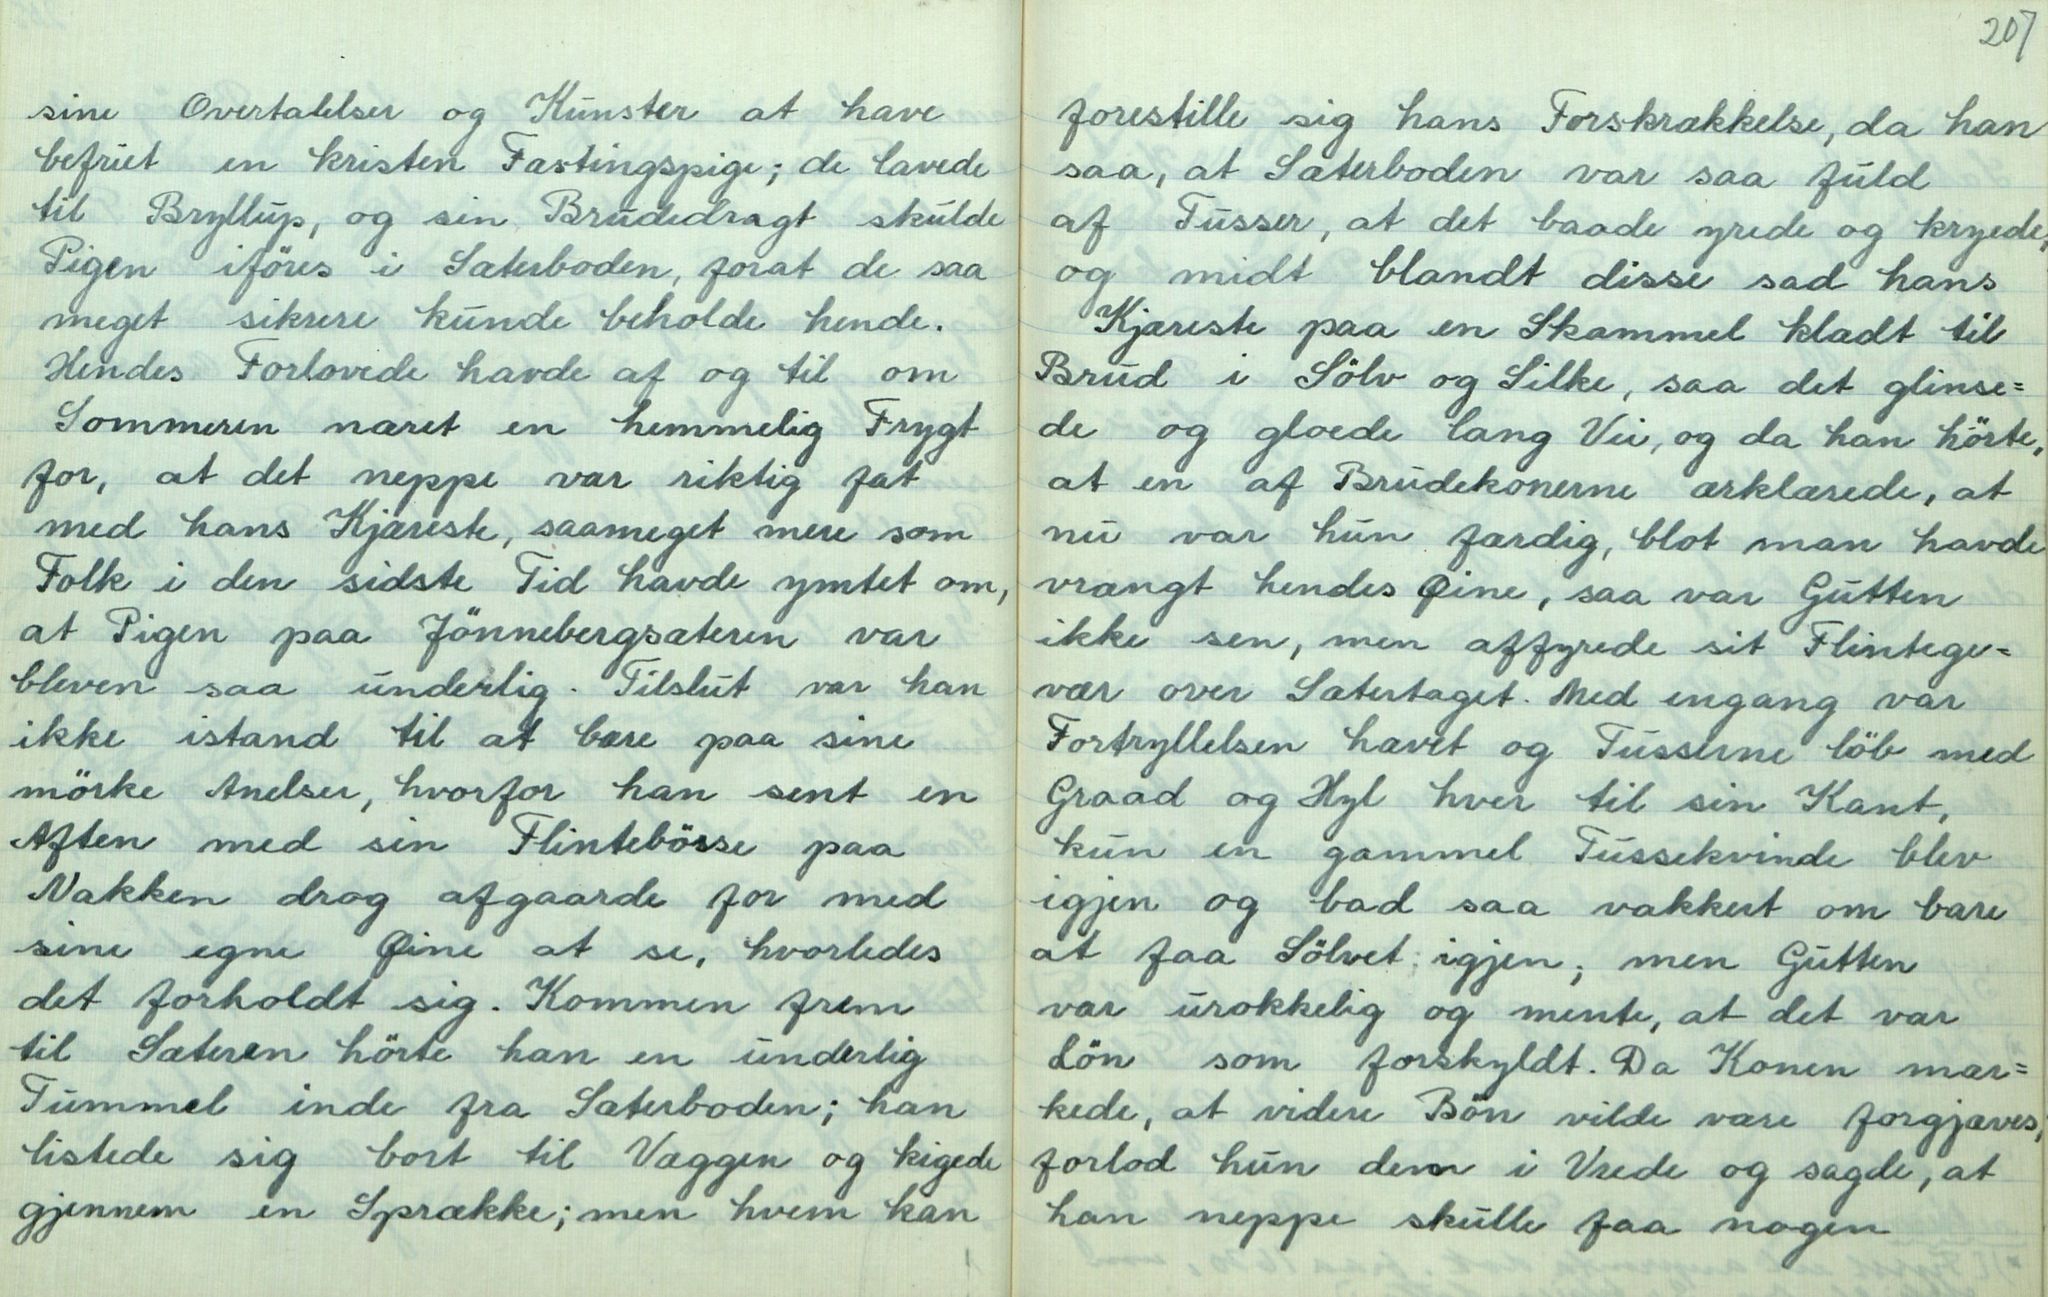 sine Overtalelser og Kunster at have
befriet en kristen Fastingspige; de lavede
til Bryllup, og sin Brudedragt skulde
Pigen iföres i Sæterboden, forat de saa
meget sikrere kunde beholde hende.
Hendes Forlovede havde af og til om
Sommeren næret en hemmelig Frygt
for, at det neppe var riktig fat
med hans Kjæreste, saameget mere som
Folk i den sidste Tid havde ymtet om,
at Pigen paa Jönnebergsæteren var
bleven saa underlig. Tilslut var han
ikke istand til at bære paa sine
mörke Anelser, hvorfor han sent en
Aften med sin Flintebösse paa
Nakken drog afgaarde for med
sine egne Øine at se, hvorledes
det forholdt sig. Kommen frem
til Sæteren hörte han en underlig
Tummel inde fra Sæterboden; han
listede sig bort til Væggen og kigede
gjennem en Sprække; men hvem kan
207
forestille sig hans Forskrækkelse, da han
saa, at Sæterboden var saa fuld
af Tusser, at det baade yrede og kryede,
og midt blandt disse sad hans
Kjæreste paa en Skammel klædt til
Brud i Sölv og Silke, saa det glinse=
de og gloede lang Vei, og da han hörte,
at en af Brudekonerne ærklærede, at
nu var hun færdig, blot man havde
vrængt hendes Øine, saa var Gutten
ikke sen, men affyrede sit Flintege=
vær over Sætertaget. Med engang var
Fortryllelsen hævet og Tusserne löb med
Graad og Hyl hver til sin Kant,
kun en gammel Tussekvinde blev
igjen og bad saa vakkert om bare
at faa Sölvet igjen; men Gutten
var urokkelig og mente, at det var
Lön som forskyldt. Da Konen mær=
kede, at videre Bön vilde være forgjæves,
forlod hun dem i Vrede og sagde, at
han neppe skulle faa nogen